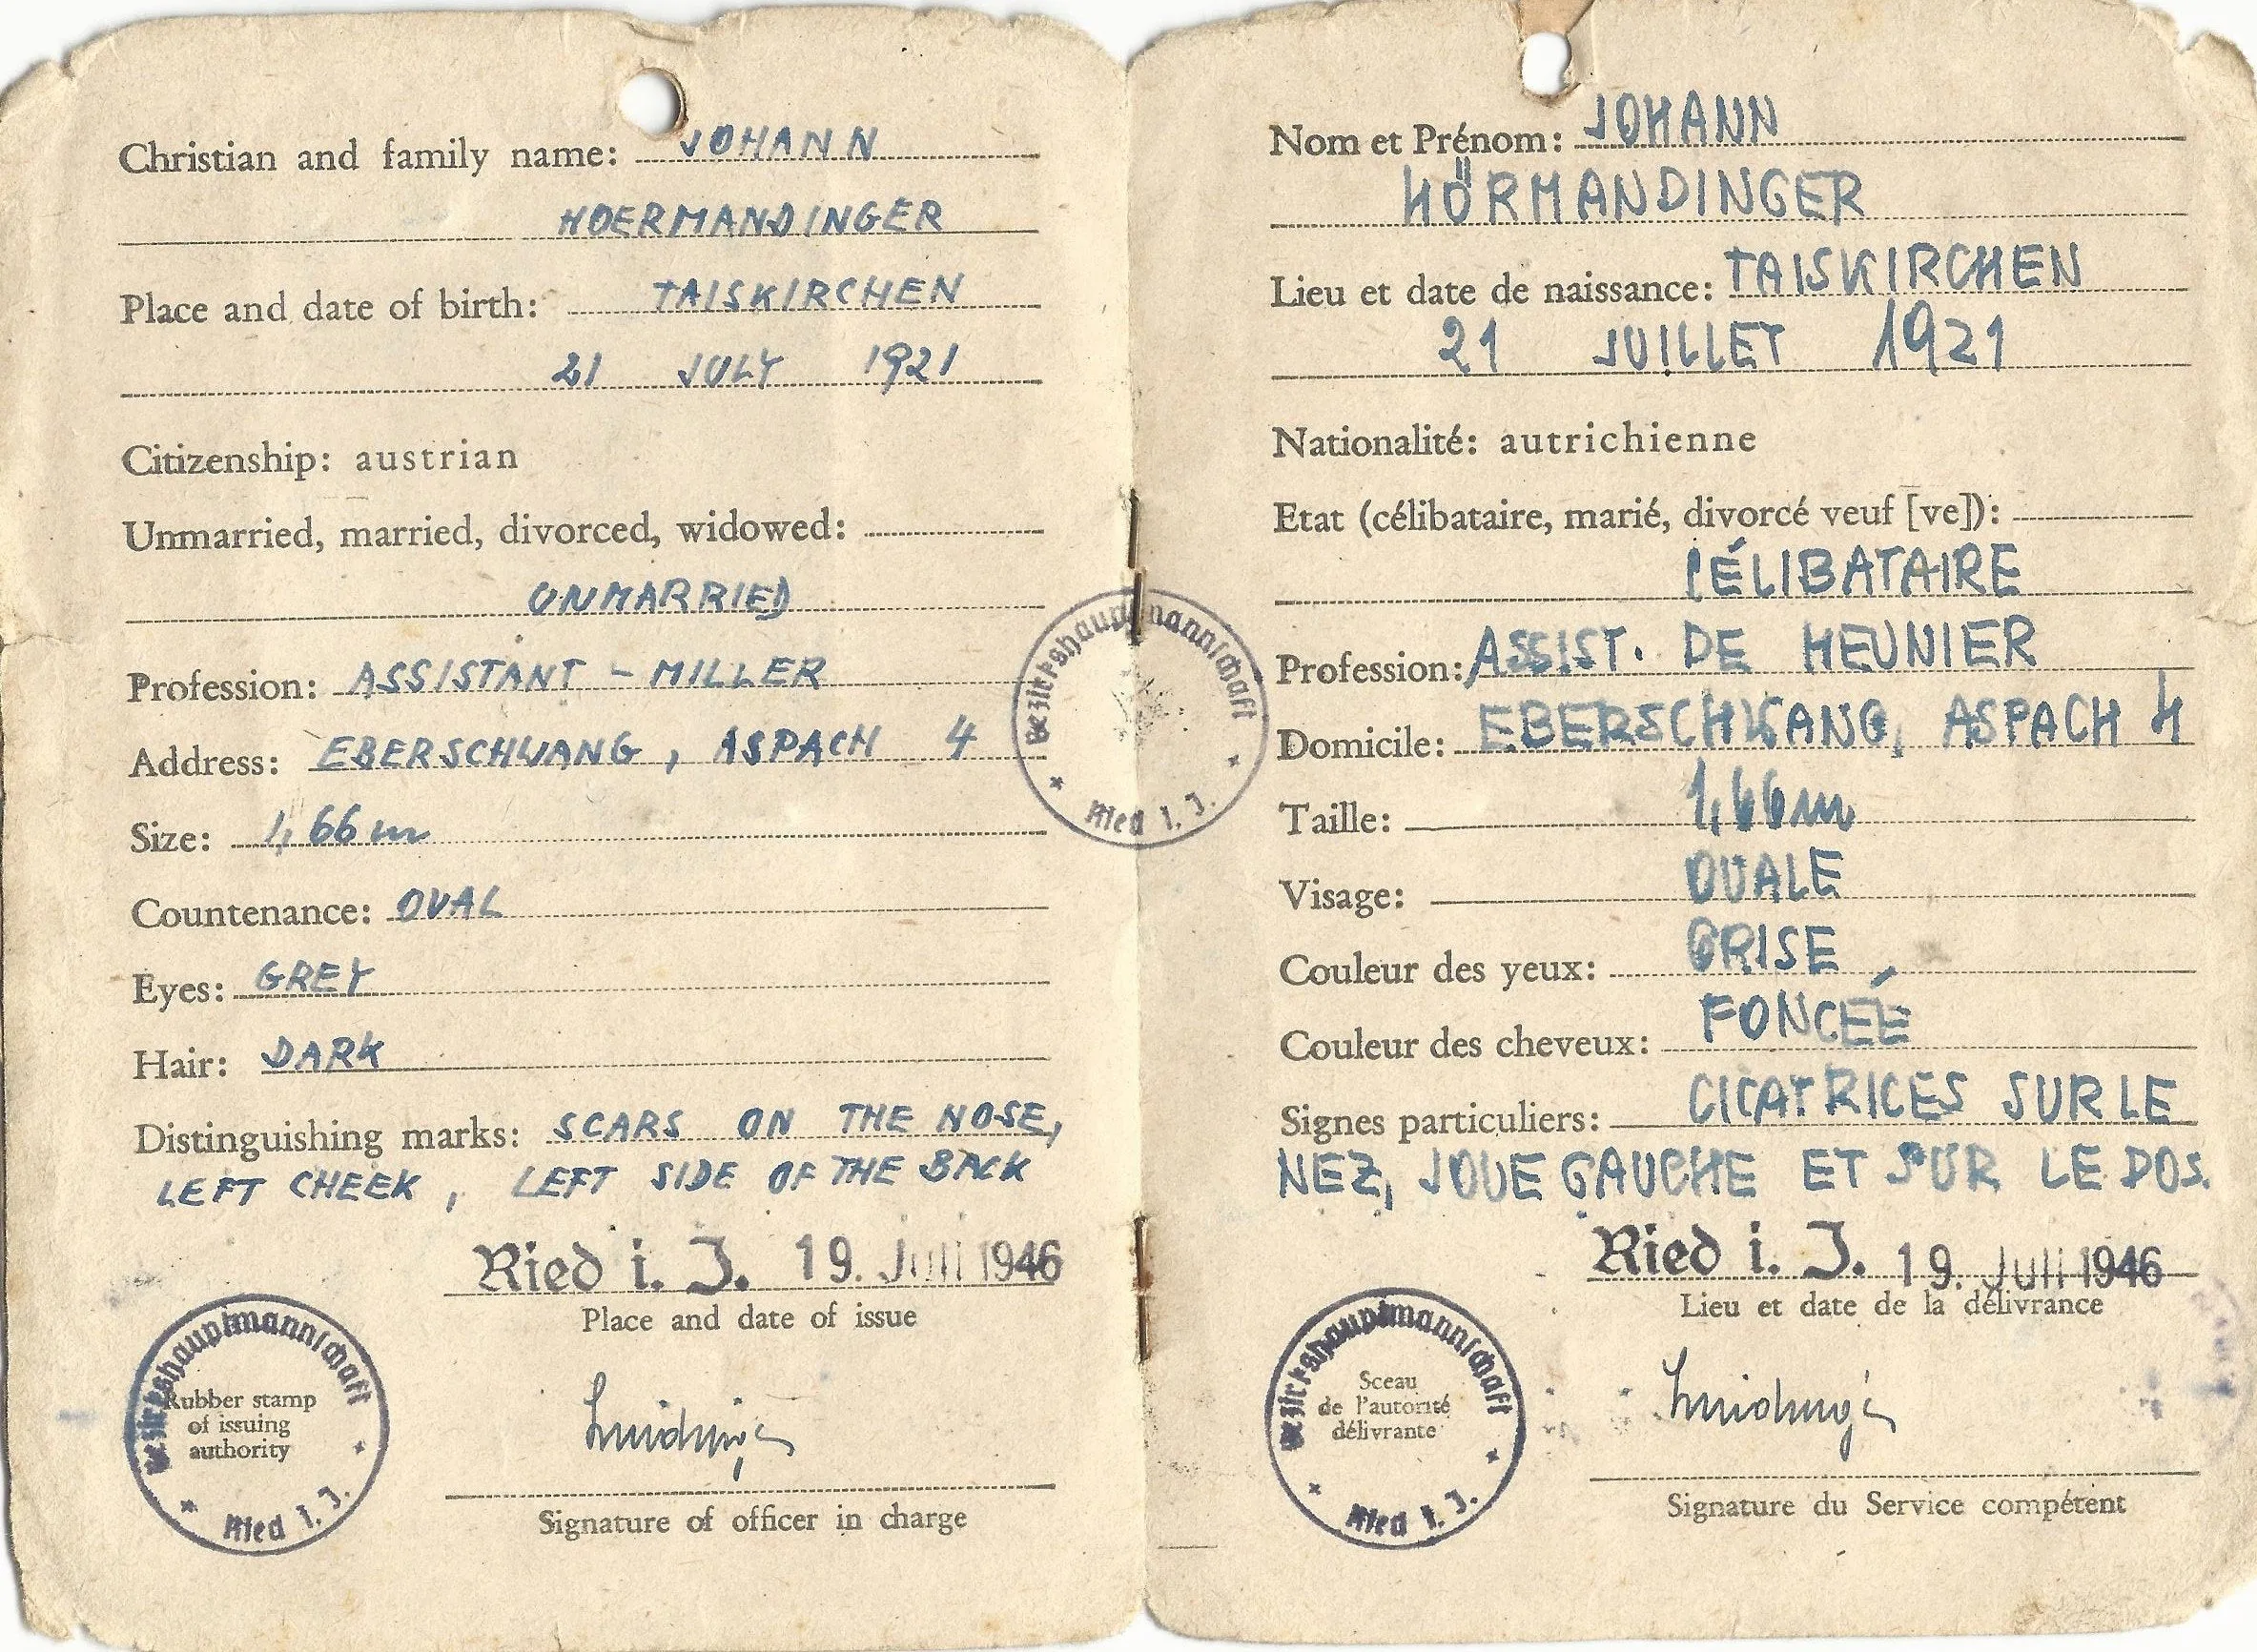 Christian and family name: JOHANN
HOERMANDINGER
Place and date of birth: TAISKIRCHEN
21 JULY 1921
Citizenship: austrian
Unmarried, married, divorced, widowed:
UNMARRIED
Profession: ASSISTANT - MILLER
Address: EBERSCHWANG, ASPACH 4
Size: 1,66 m
Countenance: OVAL
Eyes: GREY
Hair: DARK
Distinguishing marks: SCARS ON THE NOSE,
LEFT CHEEK, LEFT SIDE OF THE BACK
Ried i. J. 19. Juli 1946
Place and date of issue
Bezirkshauptmannschaft
Rubber stamp
of issuing
authority
Ried i. J.
Signature of officer in charge
Bezirkshauptmannschaft
Ried i. J.
Nom et Prénom: JOHANN
HÖRMANDINGER
Lieu et date de naissance: TAISKIRCHEN
21 JUILLET 1921
Nationalité: autrichienne
Etat (célibataire, marié, divorcé veuf [ve]):
CÉLIBATAIRE
Profession: ASSIST. DE MEUNIER
Domicile: EBERSCHWANG, ASPACH 4
Taille: 1,66 m
Visage: OVALE
Couleur des yeux: GRISE
Couleur des cheveux: FONCÉE
Signes particuliers: CICATRICES SUR LE
NEZ, JOUE GAUCHE ET SUR LE DOS.
Ried i. J. 19. Juli 1946
Lieu et date de la délivrance
Bezirkshauptmannschaft
Sceau
de l'autorité
délivrante
Ried i. J.
Signature du Service compétent